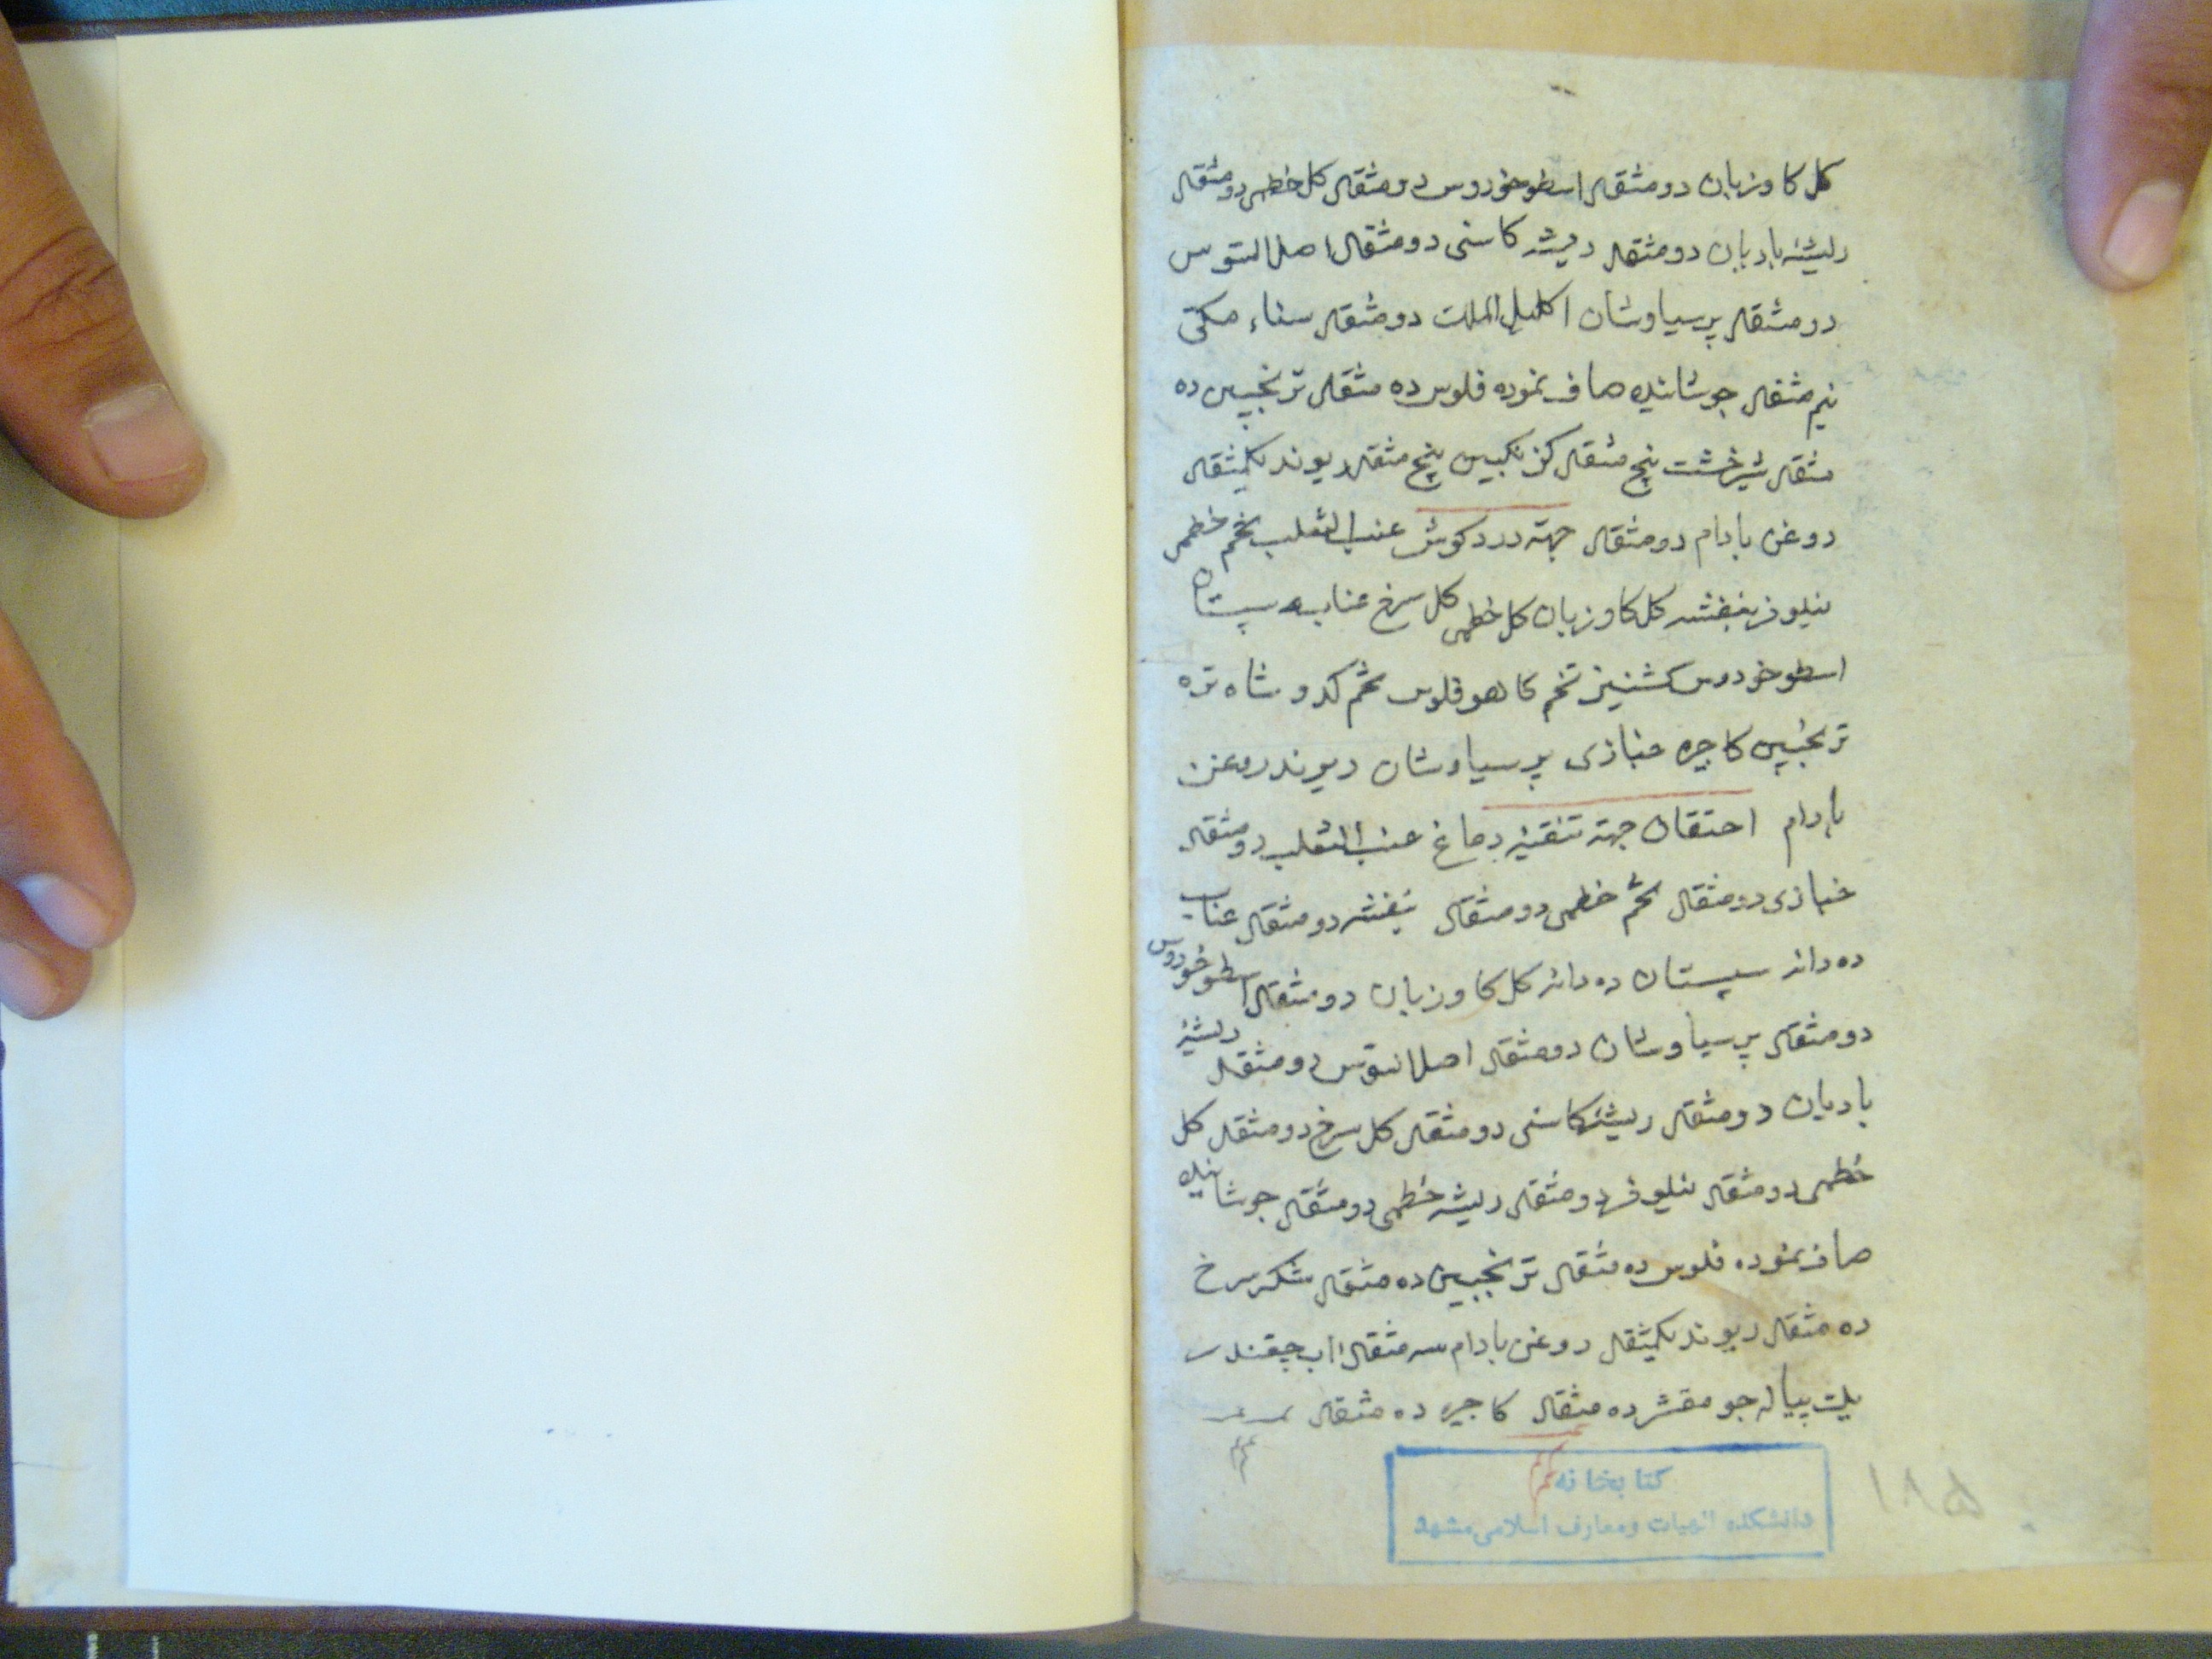 کل کاوزبان دو مثقال اسطوخودوس دو مثقال کل خطمی دو مثقال
ریشه بادیان دو مثقال ریشه کاسنی دو مثقال اصل السوس
دو مثقال پرسیاوشان اکلیل الملک دو مثقال سناء مکی
نیم مثقال جوشانیده صاف نموده فلوس ده مثقال ترنجبین ده
مثقال شیرخشت پنج مثقال کزنکبین پنج مثقال ریوند یکمثقال
روغن بادام دو مثقال جهته درد کوش عنب الثعلب تخم خطمی
نیلوفر بنفشه کل کاوزبان کل خطمی کل سرخ عناب سپستان
اسطوخودوس کشنیز تخم کاهو فلوس تخم کدو شاه تره
ترنجبین کاجیره خبازی پرسیاوشان ریوند روغن
بادام احتقان جهته تنقیه دماغ عنب الثعلب دو مثقال
خبازی دو مثقال تخم خطمی دو مثقال بنفشه دو مثقال عناب
ده دانه سپستان ده دانه کل کاوزبان دو مثقال اسطوخودوس
دو مثقال پرسیاوشان دو مثقال اصل السوس دو مثقال ریشه
بادیان دو مثقال ریشه کاسنی دو مثقال کل سرخ دو مثقال کل
خطمی دو مثقال نیلوفر دو مثقال ریشه خطمی دو مثقال جوشانیده
صاف نموده فلوس ده مثقال ترنجبین ده مثقال شکر سرخ
ده مثقال ریوند یکمثقال روغن بادام سه مثقال اب چقندر
یک پیاله جو مقشر ده مثقال کاجیره ده مثقال
کتابخانه
دانشکده الهیات و معارف اسلامی مشهد
۱۸۵